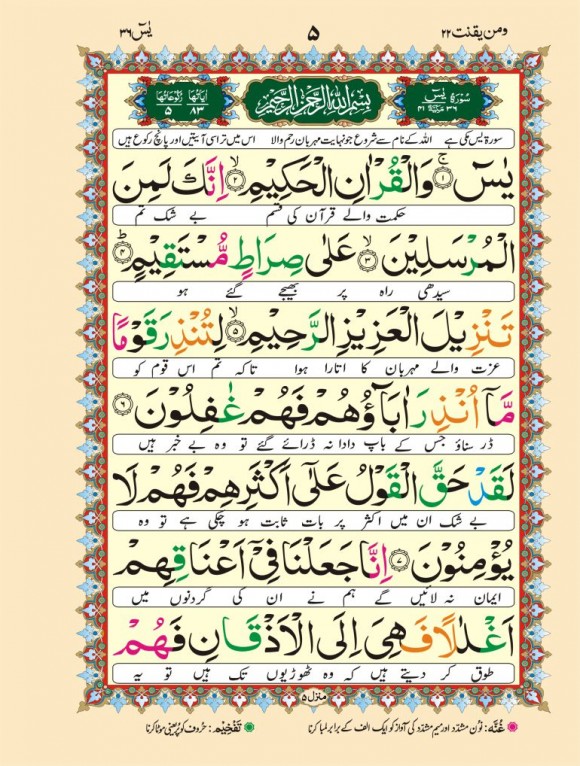 ومن یقنت ۲۲ ۵ یٰسٓ ۳۶
سورة يٰسٓ بِسْمِ اللهِ الرَّحْمٰنِ الرَّحِيْمِ اٰیاتها ۸۳ رکوعاتها ۵
سورۃ یٰس مکی ہے اللہ کے نام سے شروع جو نہایت مہربان رحم والا اس میں تراسی آیتیں اور پانچ رکوع ہیں
يٰسٓ ۚ‏﴿۱﴾ وَالْقُرْاٰنِ الْحَكِيْمِ ۙ‏﴿۲﴾ اِنَّكَ لَمِنَ
حکمت والے قرآن کی قسم بے شک تم
الْمُرْسَلِيْنَ ۙ‏﴿۳﴾ عَلٰى صِرَاطٍ مُّسْتَقِيْمٍ ؕ‏﴿۴﴾
سیدھی راہ پر بھیجے گئے ہو
تَنْزِيْلَ الْعَزِيْزِ الرَّحِيْمِ ۙ‏﴿۵﴾ لِتُنْذِرَ قَوْمًا
عزت والے مہربان کا اتارا ہوا تاکہ تم اس قوم کو
مَّاۤ اُنْذِرَ اٰبَآؤُهُمْ فَهُمْ غٰفِلُوْنَ ﴿۶﴾
ڈر سناؤ جس کے باپ دادا نہ ڈرائے گئے تو وہ بے خبر ہیں
لَقَدْ حَقَّ الْقَوْلُ عَلٰٓى اَكْثَرِهِمْ فَهُمْ لَا
بے شک ان میں اکثر پر بات ثابت ہو چکی ہے تو وہ
يُؤْمِنُوْنَ ﴿۷﴾ اِنَّا جَعَلْنَا فِىْٓ اَعْنَاقِهِمْ
ایمان نہ لائیں گے ہم نے ان کی گردنوں میں
اَغْلٰلًا فَهِىَ اِلَى الْاَذْقَانِ فَهُمْ
طوق کر دیتے ہیں کہ وہ ٹھوڑیوں تک ہیں تو یہ
منازل ۵
غُنَّه: نون مشدّد اور میم مشدّد کی آواز کو ایک الف کے برابر لمبا کرنا تَفْخِیْم: حروف کو پُر یعنی موٹا کرنا